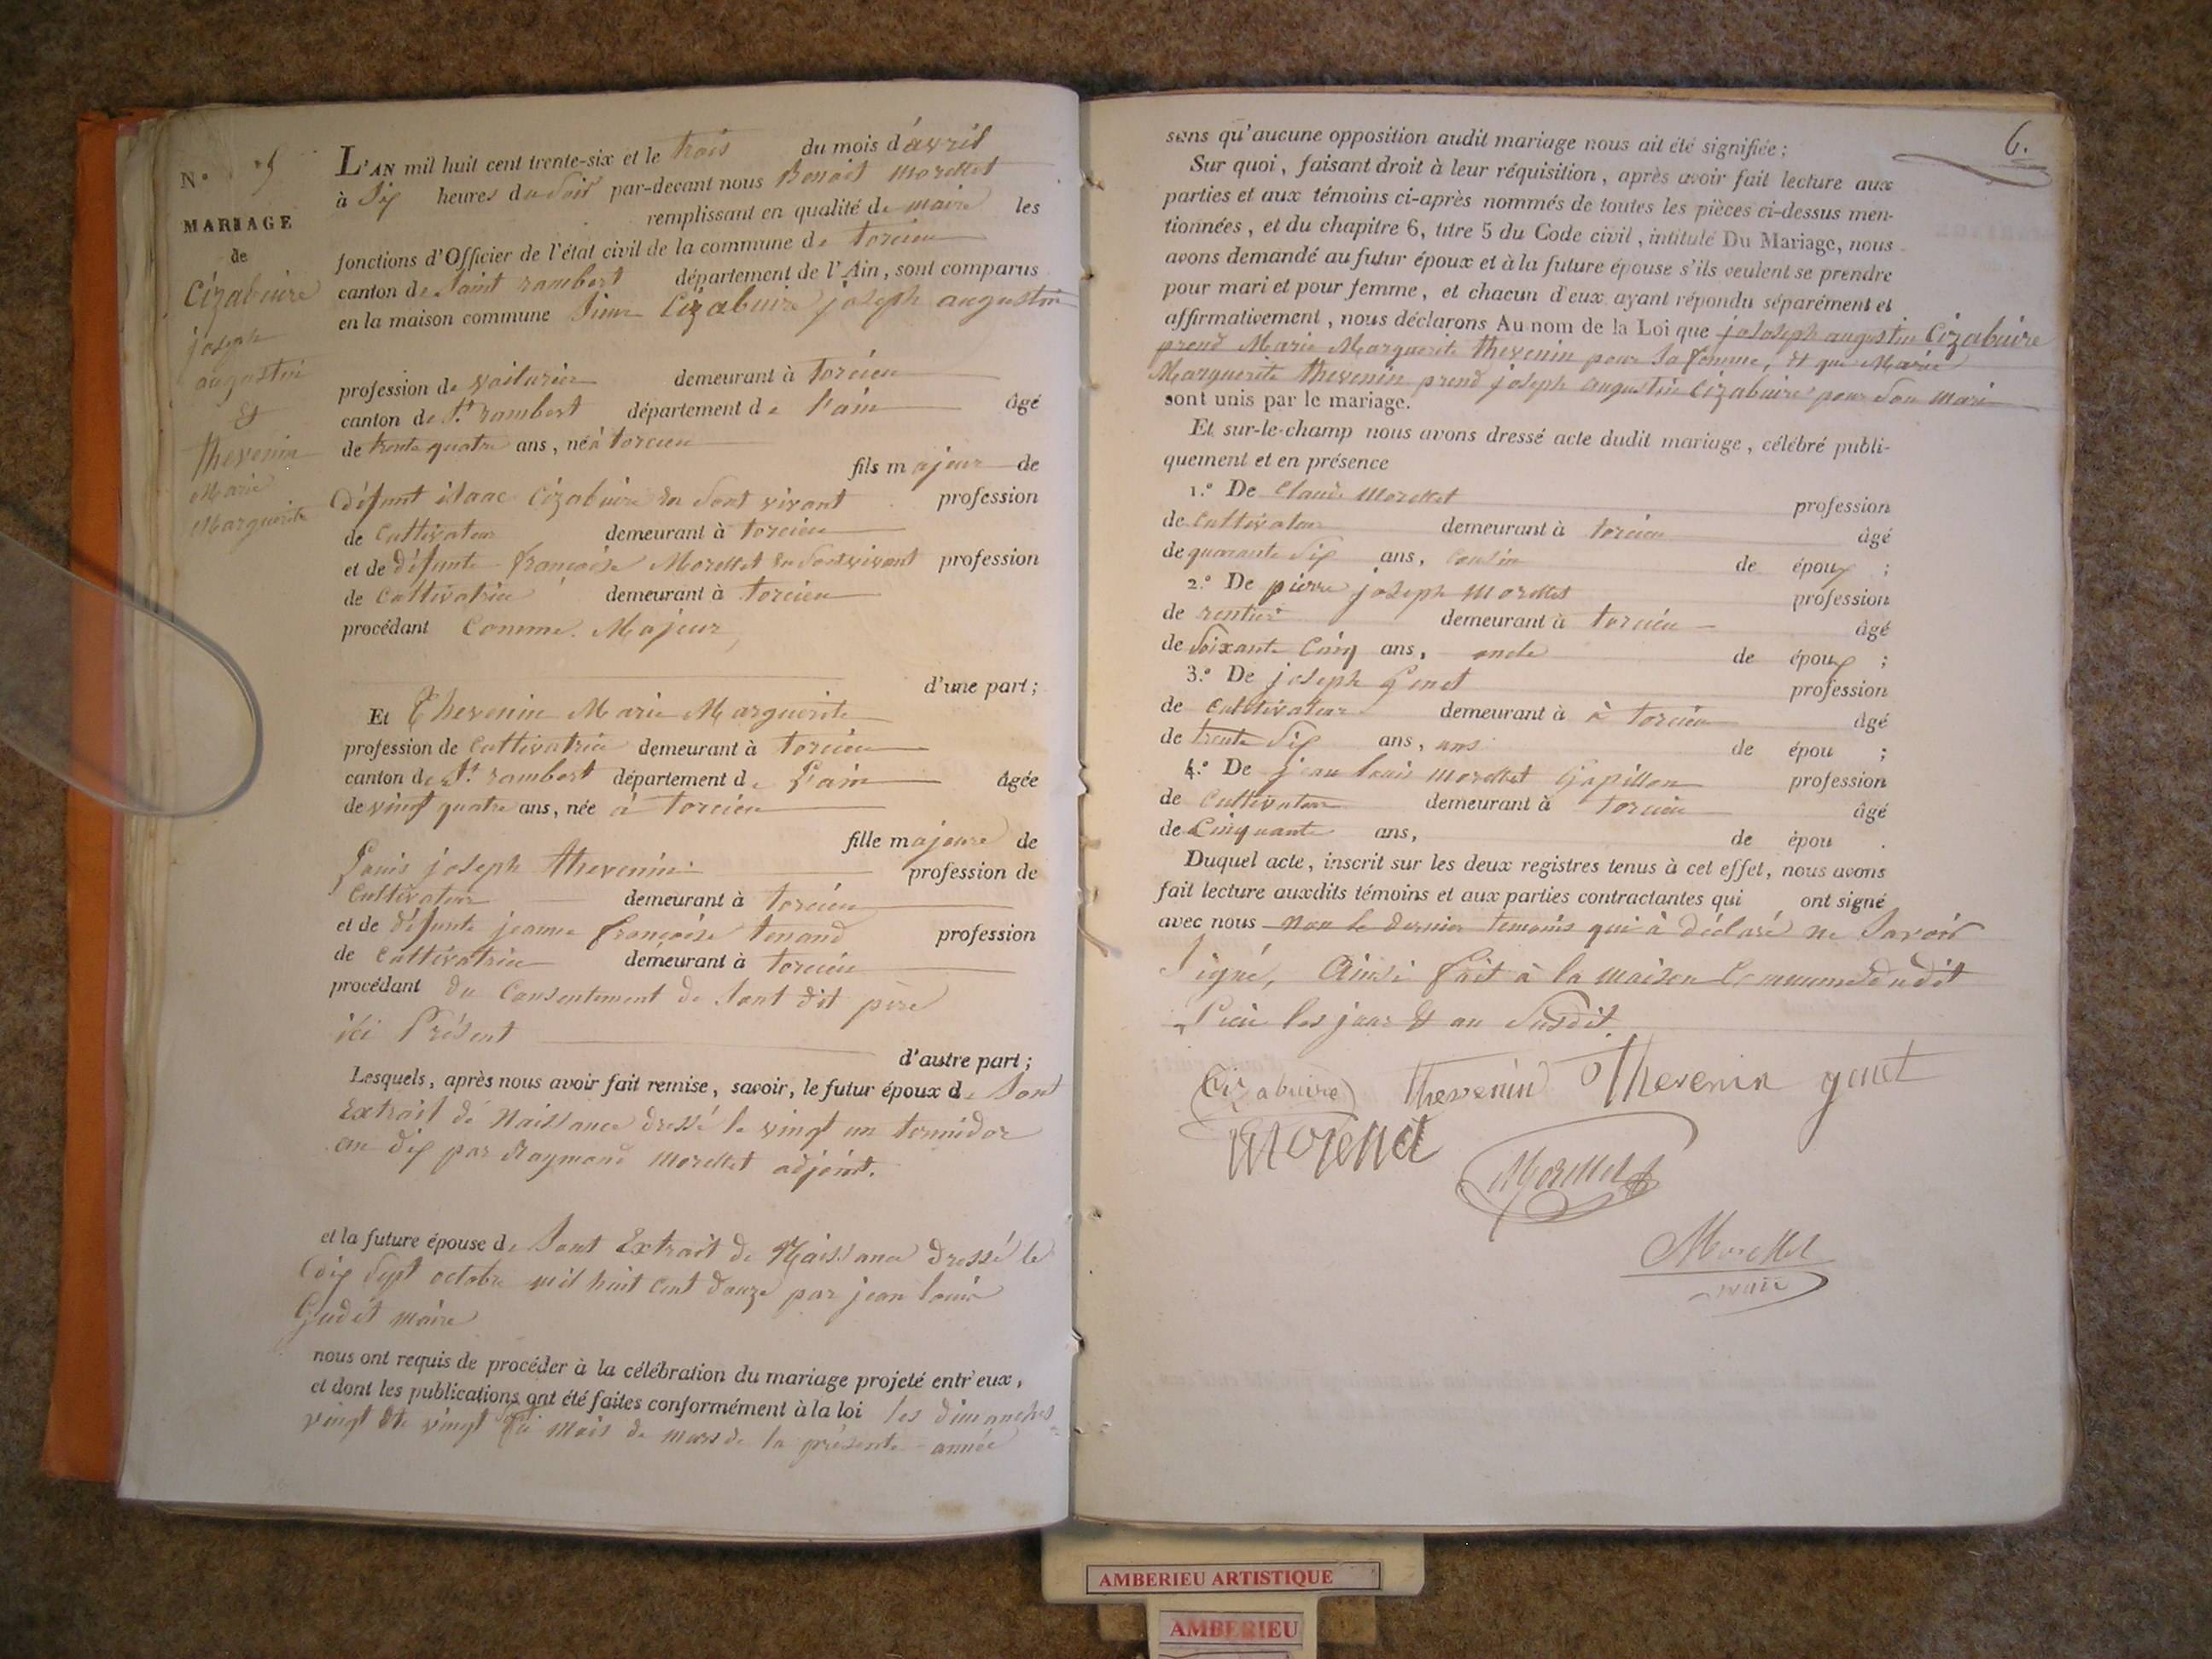 N.° 5
MARIAGE
de
Cizabuire
joseph
augustin
Et
thevenin
Marie
Marguerite
L'AN mil huit cent trente-six et le trois du mois d'avril
à Six heures du Soir par-devant nous Benoit Morellet
remplissant en qualité de maire les
fonctions d'Officier de l'état civil de la commune de torcieu
canton de Saint rambert département de l'Ain, sont comparus
en la maison commune Sieur Cizabuire joseph augustin
profession de voiturier demeurant à torcieu
canton de St. rambert département de l'ain âgé
de trente quatre ans, né à torcieu
fils majeur de
défunt isaac Cizabuire En Sont vivant profession
de Cultivateur demeurant à torcieu
et de défunte françoise Morellet En Sont vivant profession
de Cultivatrice demeurant à torcieu
procédant Comme Majeur,
d'une part;
Et Thevenin Marie Marguerite
profession de Cultivatrice demeurant à torcieu
canton de St. rambert département de L'ain âgée
de vingt quatre ans, née à torcieu
fille majeure de
Louis joseph thevenin profession de
Cultivateur demeurant à torcieu
et de défunte jeanne françoise tenand profession
de Cultivatrice demeurant à torcieu
procédant du Consentement de Sont dit père
ici Présent
d'autre part;
Lesquels, après nous avoir fait remise, savoir, le futur époux de Sont
Extrait de Naissance dressé le vingt un termidor
an dix par Raymond Morellet adjoint.
et la future épouse de Sont Extrait de Naissance dressé le
dix Sept octobre mil huit Cent douze par jean louis
Gudet maire
nous ont requis de procéder à la célébration du mariage projeté entr'eux,
et dont les publications ont été faites conformément à la loi les dimanches
vingt et vingt Sept du mois de mars de la présente année
6.
sans qu'aucune opposition audit mariage nous ait été signifiée;
Sur quoi, faisant droit à leur réquisition, après avoir fait lecture aux
parties et aux témoins ci-après nommés de toutes les pièces ci-dessus men-
tionnées, et du chapitre 6, titre 5 du Code civil, intitulé Du Mariage, nous
avons demandé au futur époux et à la future épouse s'ils veulent se prendre
pour mari et pour femme, et chacun d'eux ayant répondu séparément et
affirmativement, nous déclarons Au nom de la Loi que jososeph augustin Cizabuire
prend Marie Marguerite thevenin pour Sa femme, et que Marie
Marguerite thevenin prend joseph augustin Cizabuire pour Son mari
sont unis par le mariage.
Et sur-le-champ nous avons dressé acte dudit mariage, célébré publi-
quement et en présence
1.° De Claude Morellet profession
de Cultivateur demeurant à torcieu âgé
de quarante Six ans, Cousin de époux;
2.° De pierre joseph Morellet profession
de rentier demeurant à torcieu âgé
de Soixante Cinq ans, oncle de époux;
3.° De joseph Genet profession
de Cultivateur demeurant à à torcieu âgé
de trente Six ans, ami de épou;
4.° De jean louis Morellet Gapillon profession
de Cultivateur demeurant à torcieu âgé
de Cinquante ans, de épou.
Duquel acte, inscrit sur les deux registres tenus à cet effet, nous avons
fait lecture auxdits témoins et aux parties contractantes qui ont signé
avec nous non le dernier temoins qui à déclaré ne Savoir
Signé, Ainsi fait à la maison Commune dudit
Lieu les jour et an Susdit.
Cizabuire thevenin Thevenin genet
Morellet
Morellet
Morellet
maire
AMBERIEU ARTISTIQUE
AMBERIEU